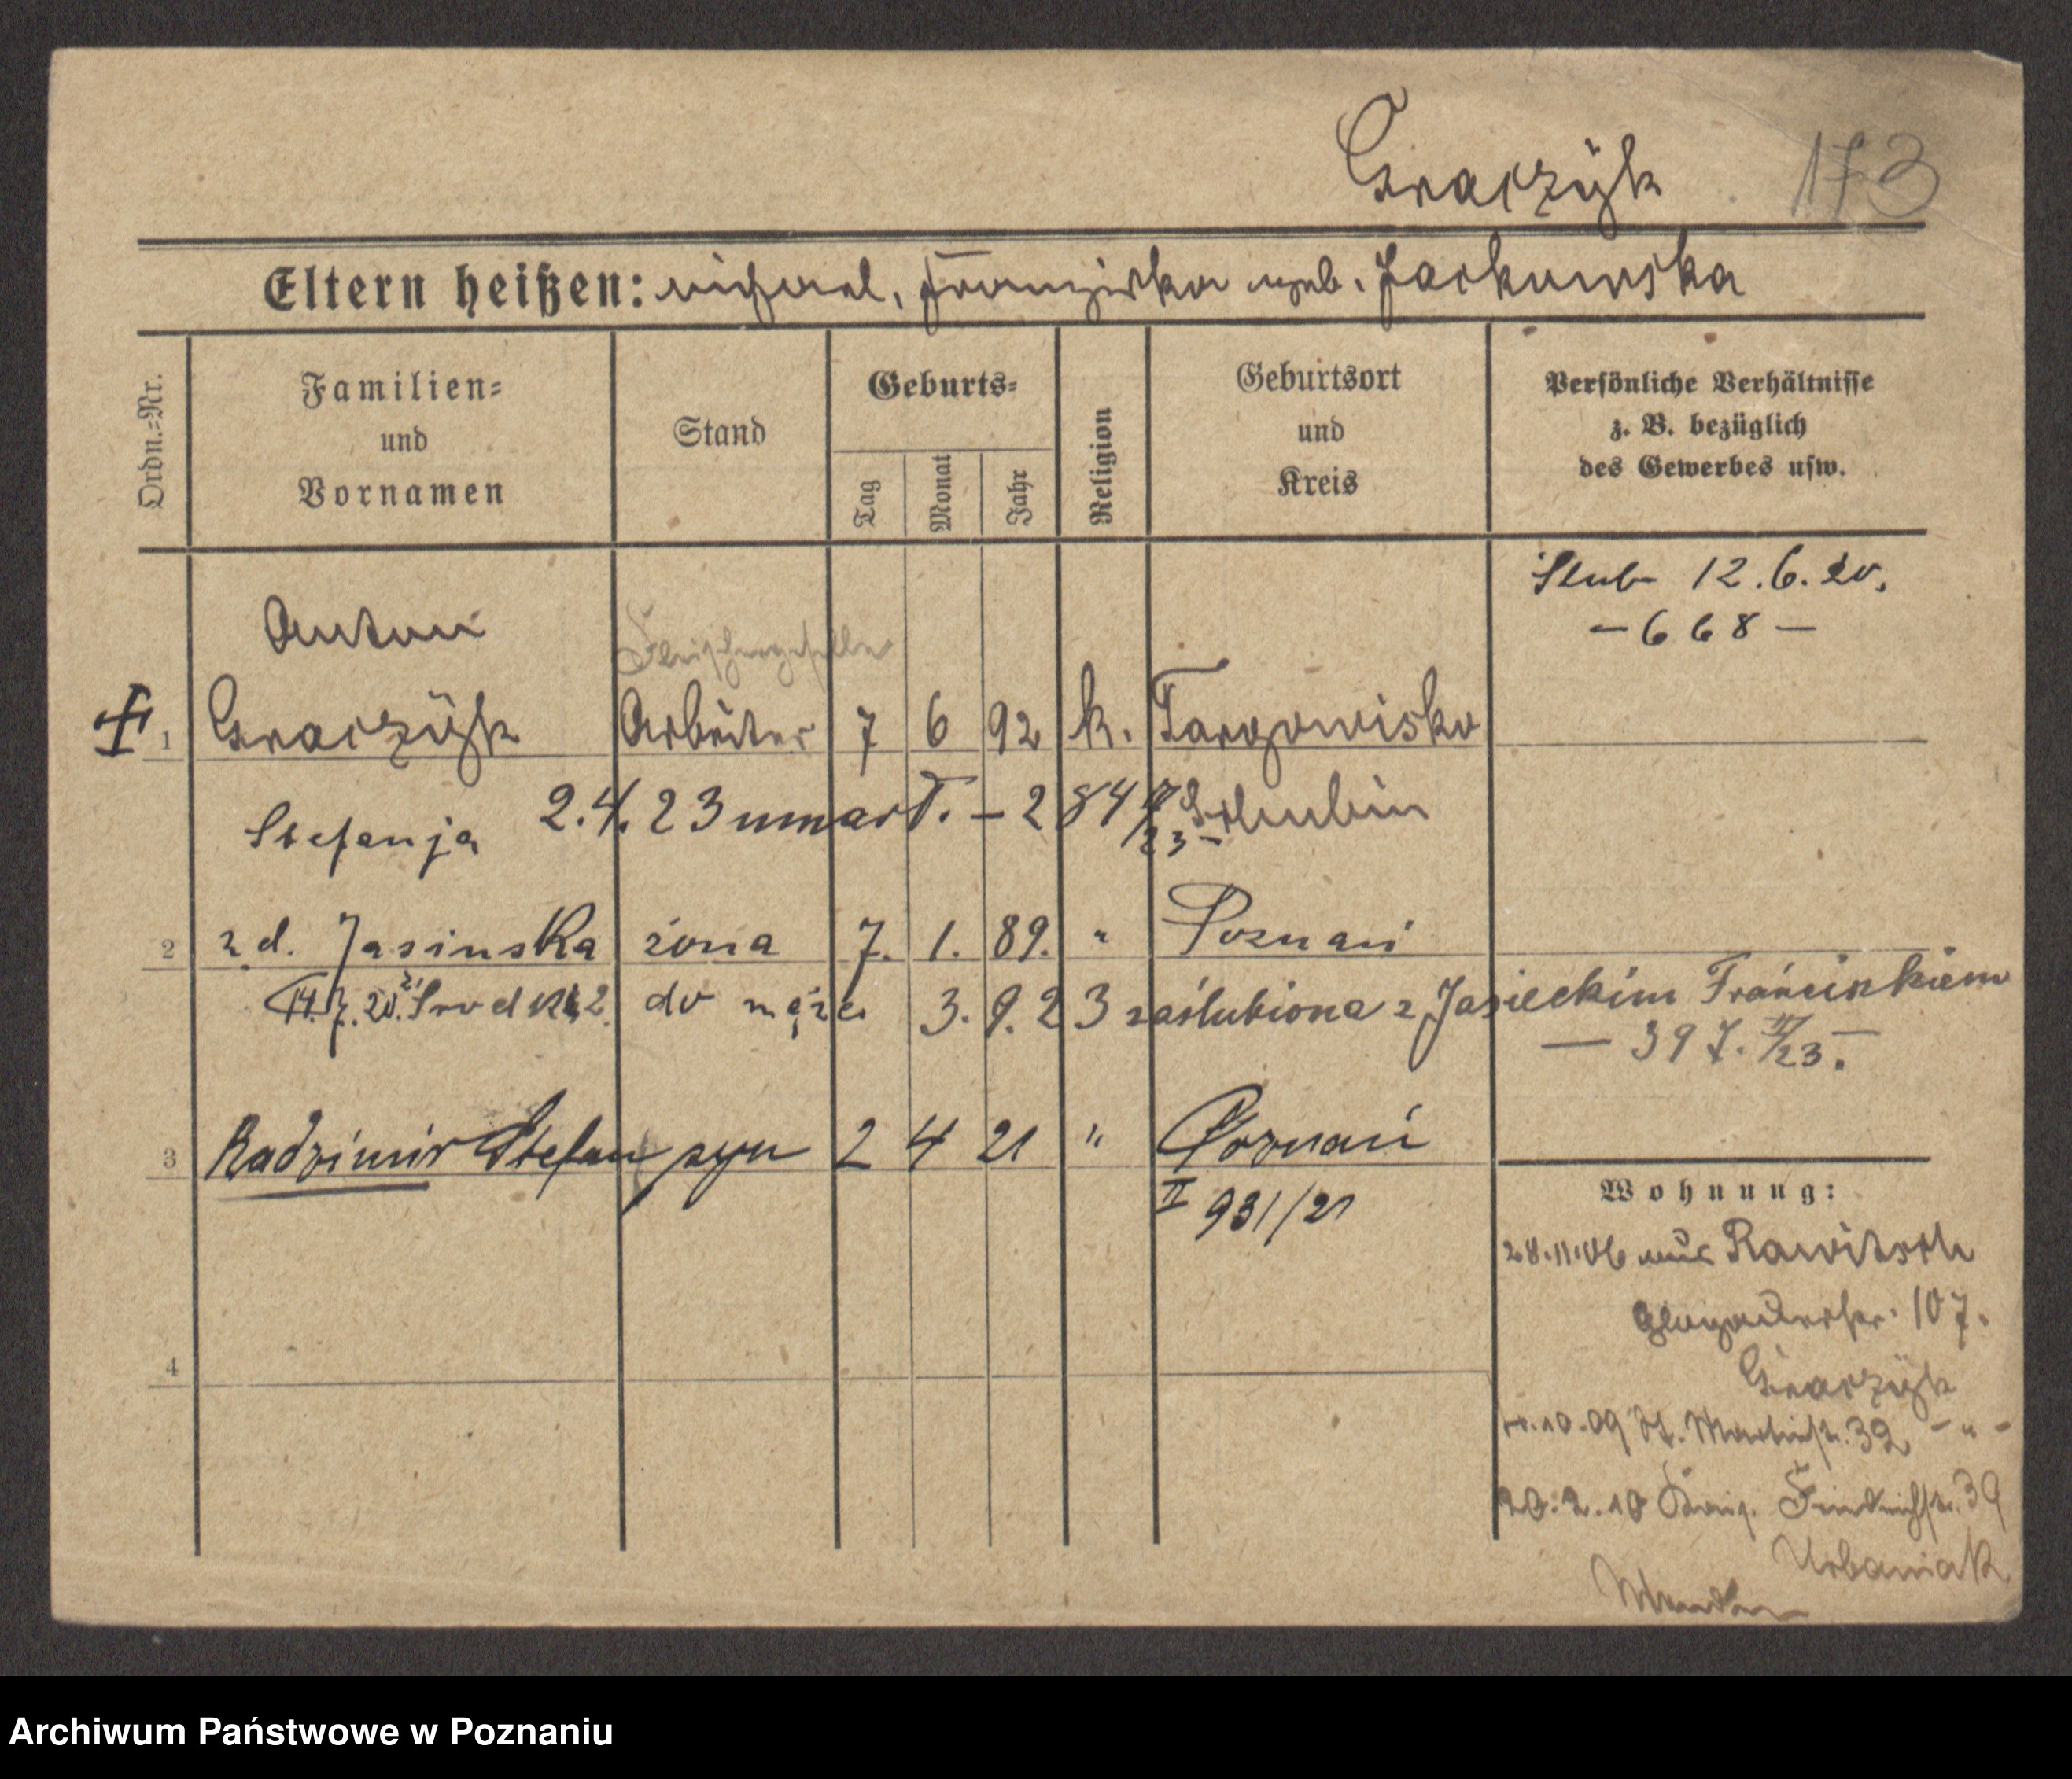 Graczÿk 173
Eltern heißen: Michael, Franziska geb. Jackowska
Ordn.=Nr.
Familien=
und
Vornamen
Stand
Geburts=
Tag
Monat
Jahr
Religion
Geburtsort
und
Kreis
Persönliche Verhältnisse
z. B. bezüglich
des Gewerbes usw.
Ślub 12.6.20.
— 668 —
Anton
Fleischergeselle
1 Graczÿk Arbeiter 7 6 92 k. Targowisko
2.4.23 umarł. – 284 II/23 – Schubin
Stefanja
2 z d. Jasinska żona 7. 1. 89. " Poznań
14.7.20. z Środki 2. do męża 3.9.23 zaślubiona z Jasieckim Franciszkiem
— 397. II/23. —
3 Radzimir Stefan syn 2 4 21 " Poznań
II 931/21
4
Wohnung:
28.11.06 aus Rawitsch
Glogauerstr. 107.
Graczÿk
10.09 St. Martinstr. 32 – " –
20.2.10 Friedrichstr. 39
Urbaniak
Archiwum Państwowe w Poznaniu